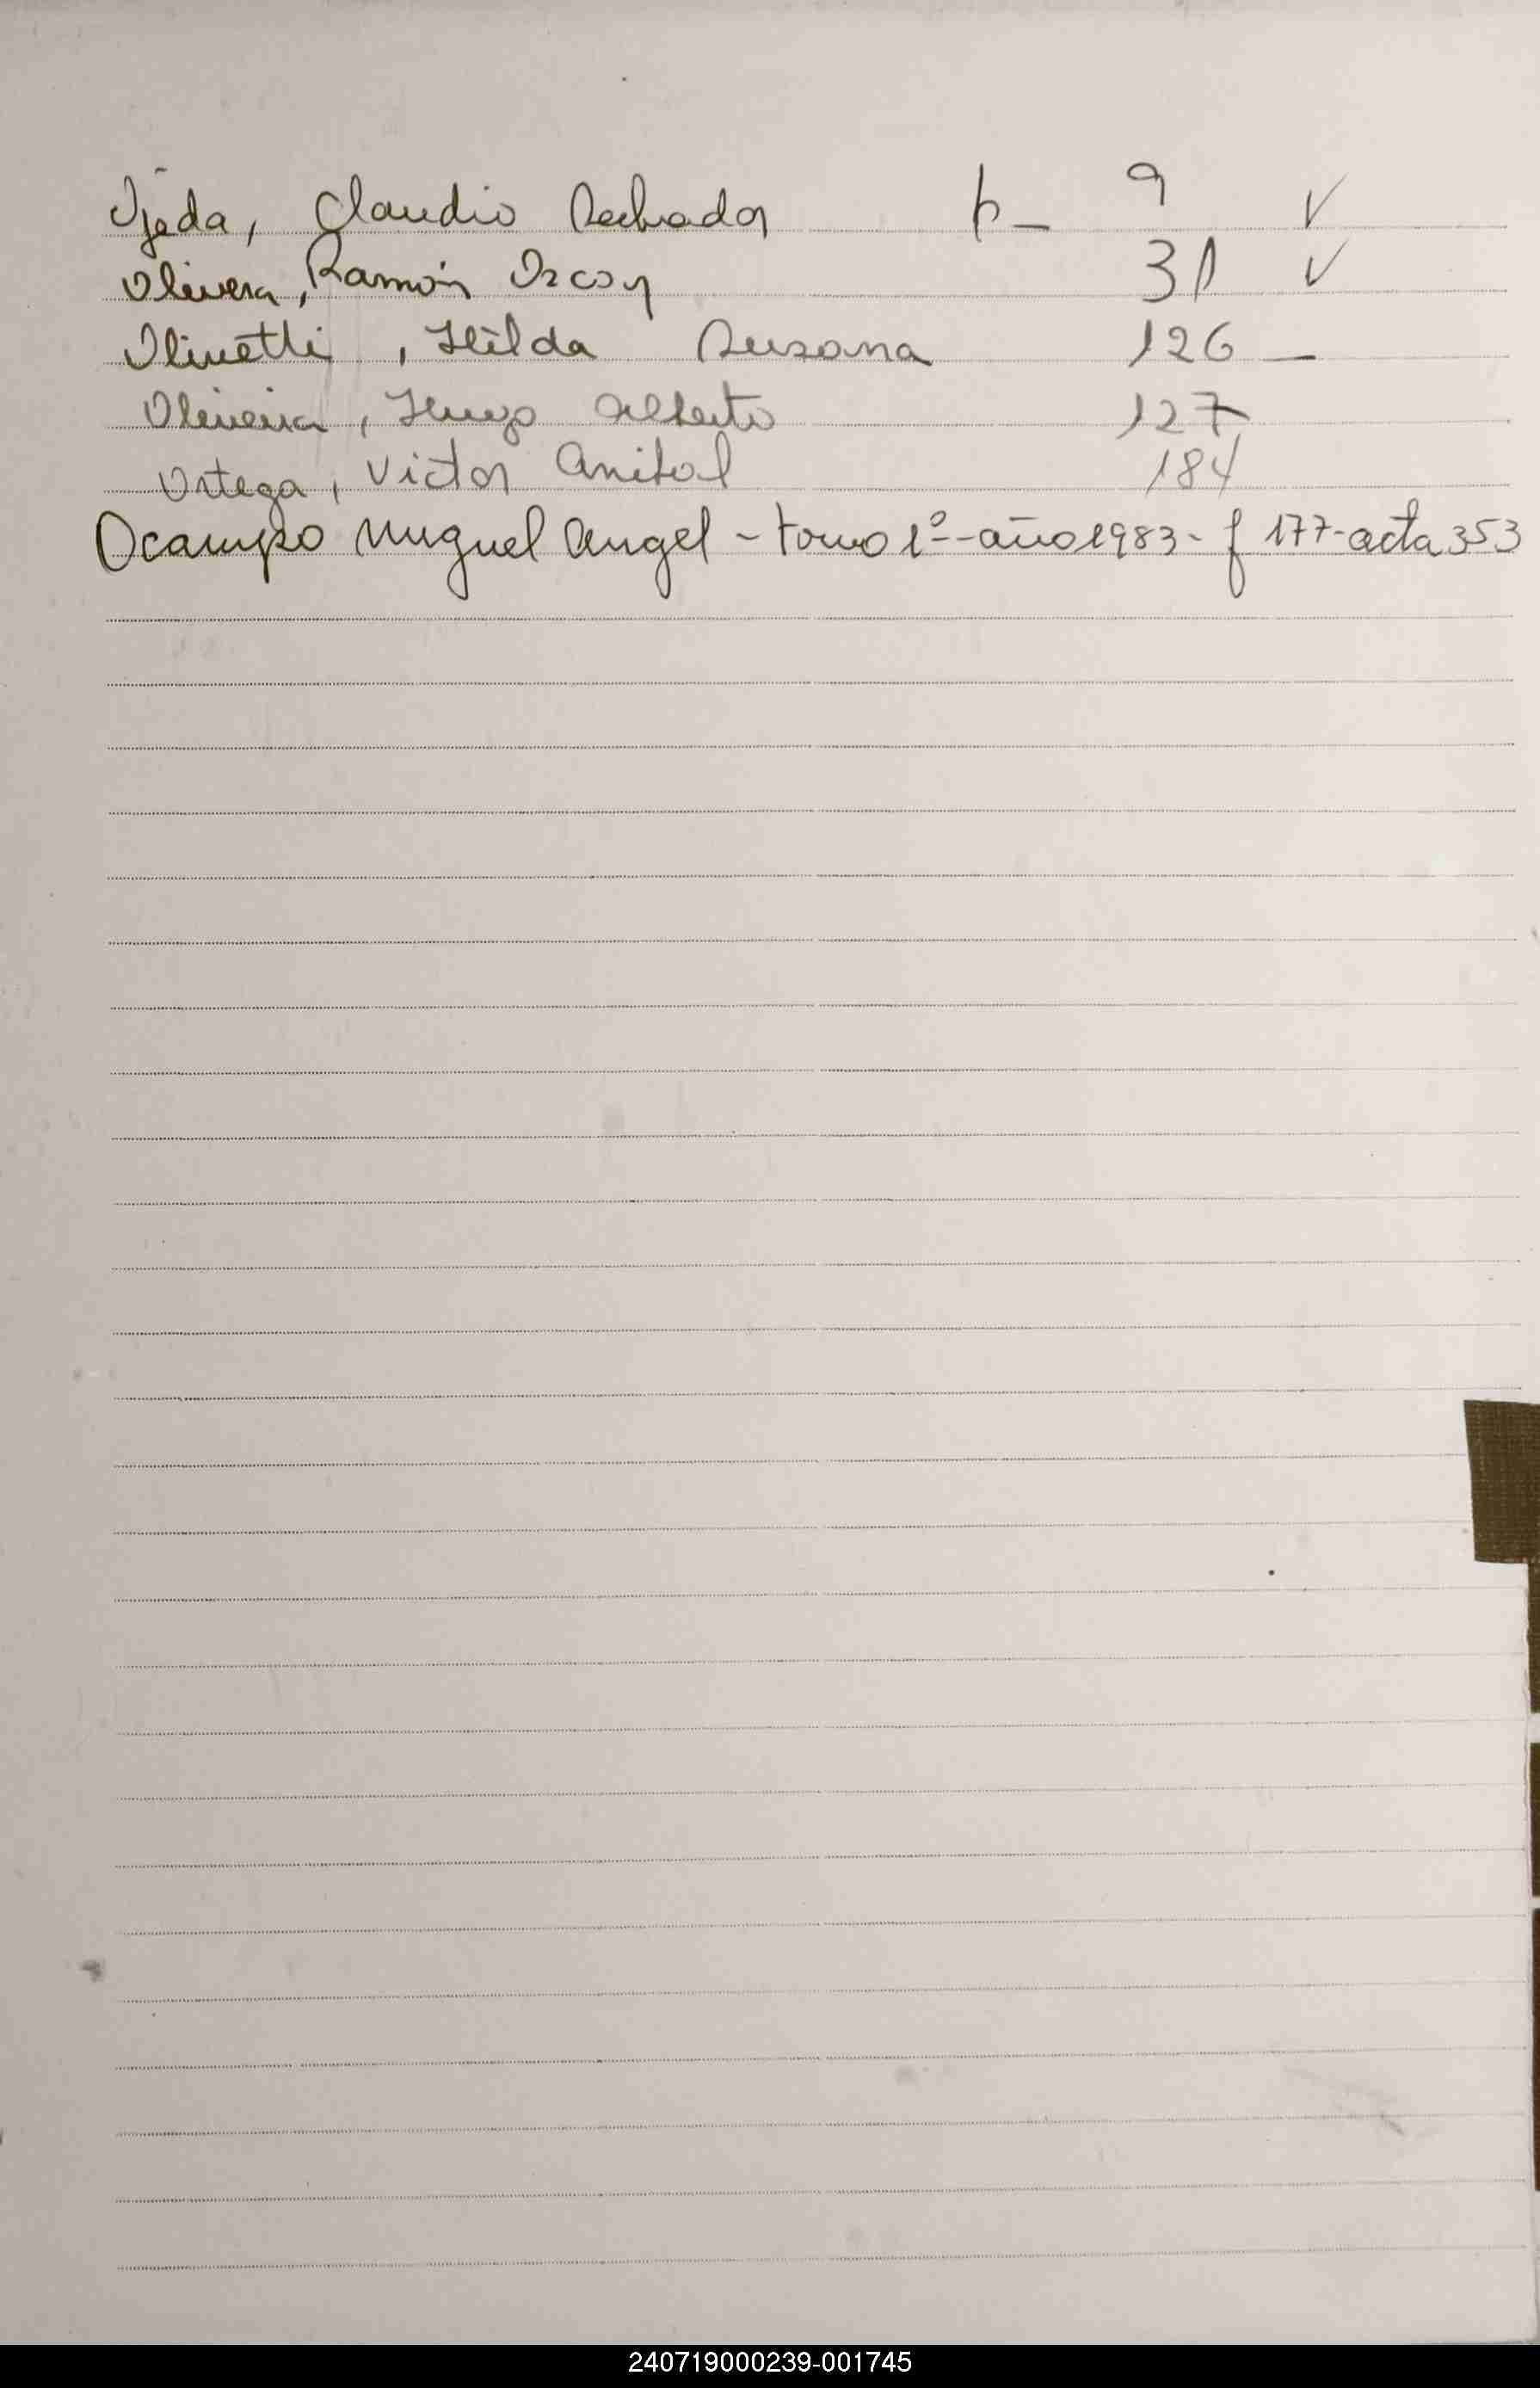 Ojeda, Claudio Salvador p- 9 ✓
Olivera, Ramón Oscar 31 ✓
Olivetti, Hilda Susana 126 -
Oliveira, Hugo Alberto 127
Ortega, Victor Anibal 184
Ocampo Miguel Angel - tomo 1º - año 1983 - f 177 - acta 353
240719000239-001745